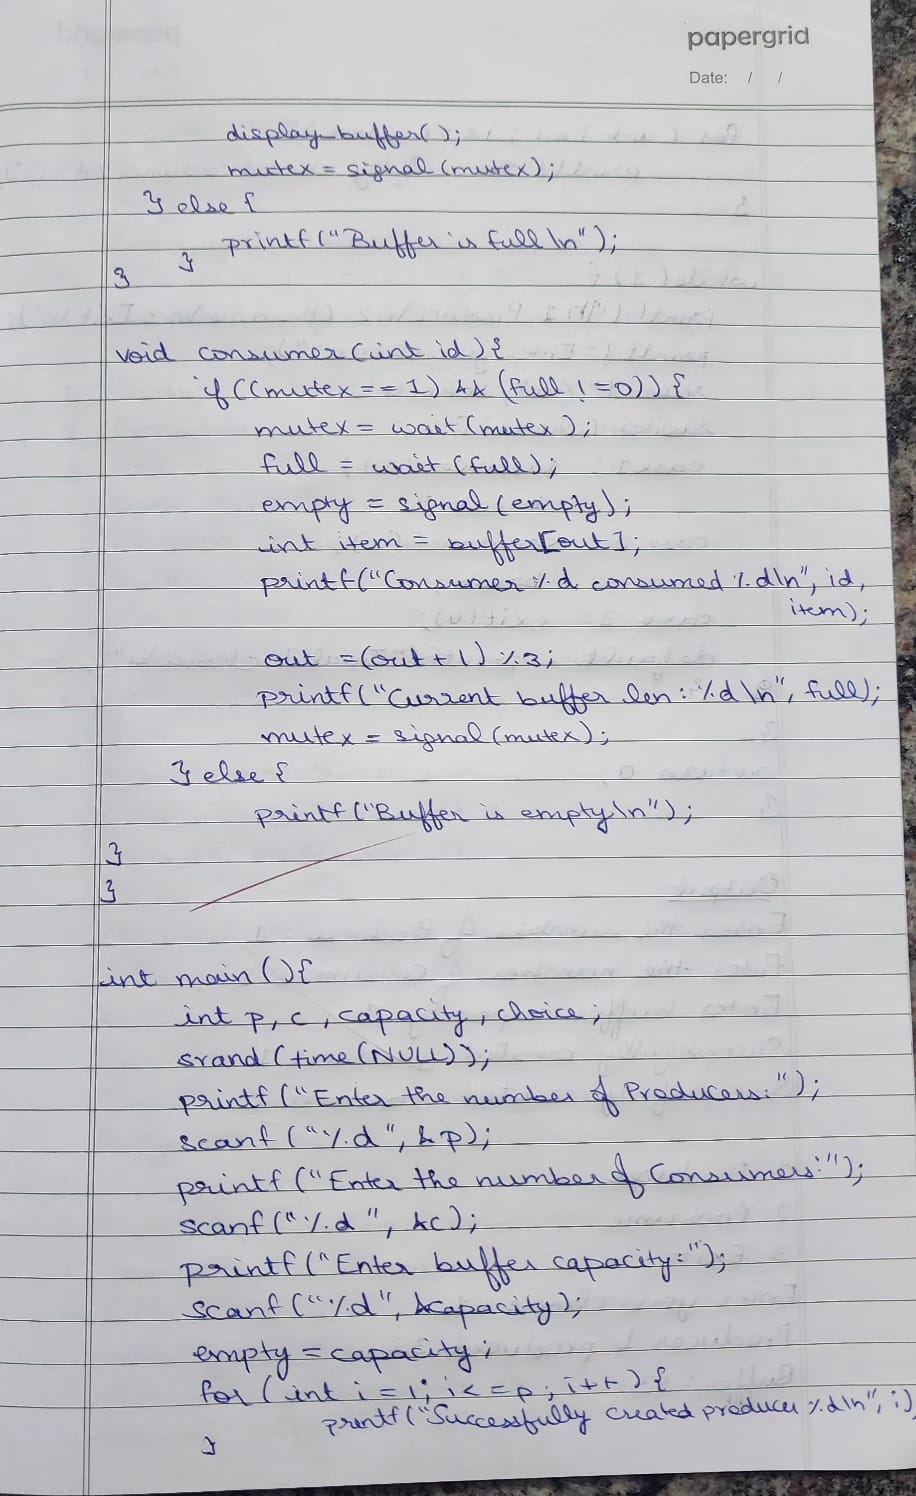 papergrid
Date: / /
display_buffer();
mutex = signal (mutex);
} else {
printf ("Buffer is full \n");
}
}
void consumer (int id) {
if ((mutex == 1) && (full != 0)) {
mutex = wait (mutex);
full = wait (full);
empty = signal (empty);
int item = buffer[out];
printf("Consumer %d consumed %d\n", id,
item);
out = (out + 1) % 3;
printf("Current buffer len : %d \n", full);
mutex = signal (mutex);
} else {
printf ("Buffer is empty \n");
}
}
int main () {
int p, c, capacity, choice;
srand (time (NULL));
printf ("Enter the number of Producers: ");
scanf ("%d", &p);
printf ("Enter the number of Consumers: ");
scanf ("%d ", &c);
printf ("Enter buffer capacity: ");
scanf ("%d", &capacity);
empty = capacity;
for (int i = 1; i <= p; i++) {
printf ("Successfully created producer %d\n", i)
}